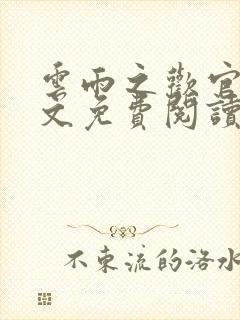 雲雨之歡官
文免費閱讀
不東流的洛水